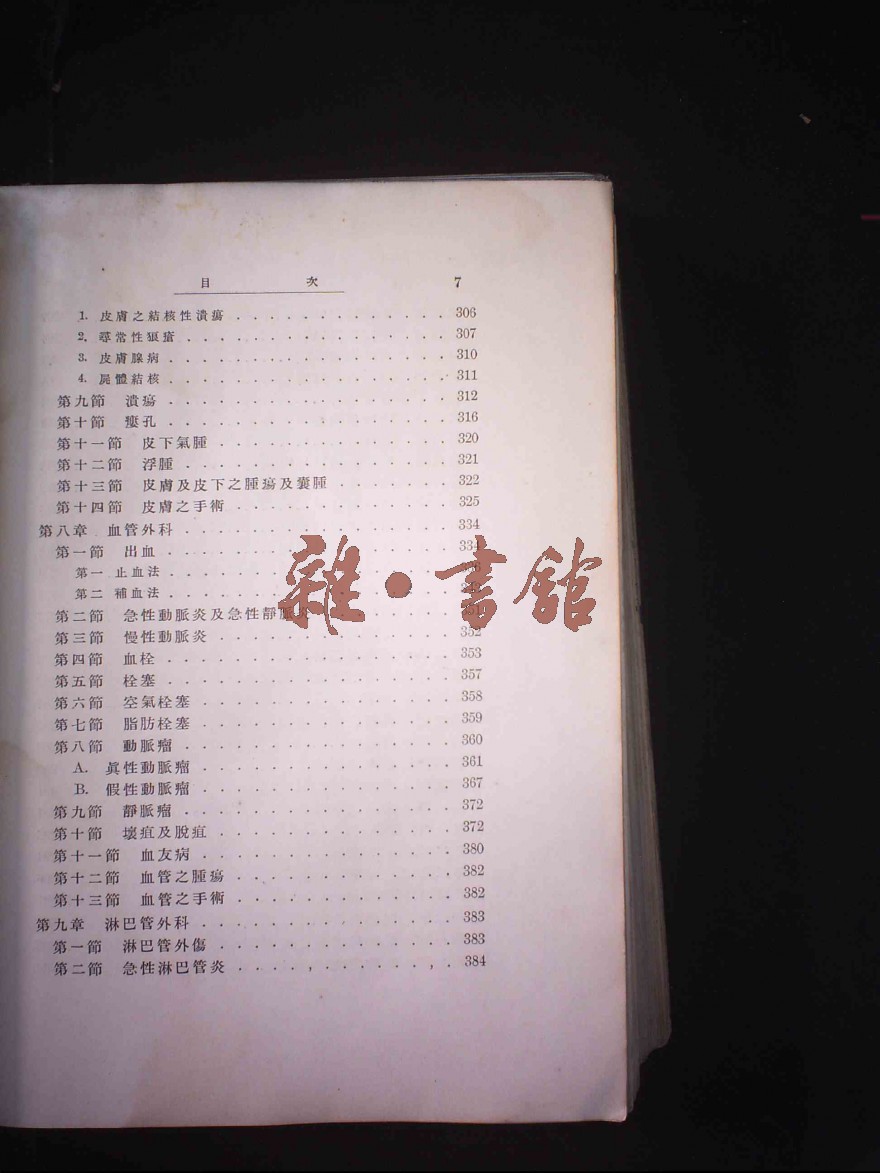 目 次 7
1. 皮膚之結核性潰瘍 306
2. 尋常性狼瘡 307
3. 皮膚腺病 310
4. 屍體結核 311
第九節 潰瘍 312
第十節 瘻孔 316
第十一節 皮下氣腫 320
第十二節 浮腫 321
第十三節 皮膚及皮下之腫瘍及囊腫 322
第十四節 皮膚之手術 325
第八章 血管外科 334
第一節 出血 334
第一 止血法
第二 補血法
第二節 急性動脈炎及急性靜脈炎 351
第三節 慢性動脈炎 352
第四節 血栓 353
第五節 栓塞 357
第六節 空氣栓塞 358
第七節 脂肪栓塞 359
第八節 動脈瘤 360
A. 眞性動脈瘤 361
B. 假性動脈瘤 367
第九節 靜脈瘤 372
第十節 壞疽及脫疽 372
第十一節 血友病 380
第十二節 血管之腫瘍 382
第十三節 血管之手術 382
第九章 淋巴管外科 383
第一節 淋巴管外傷 383
第二節 急性淋巴管炎 384
雜·書館